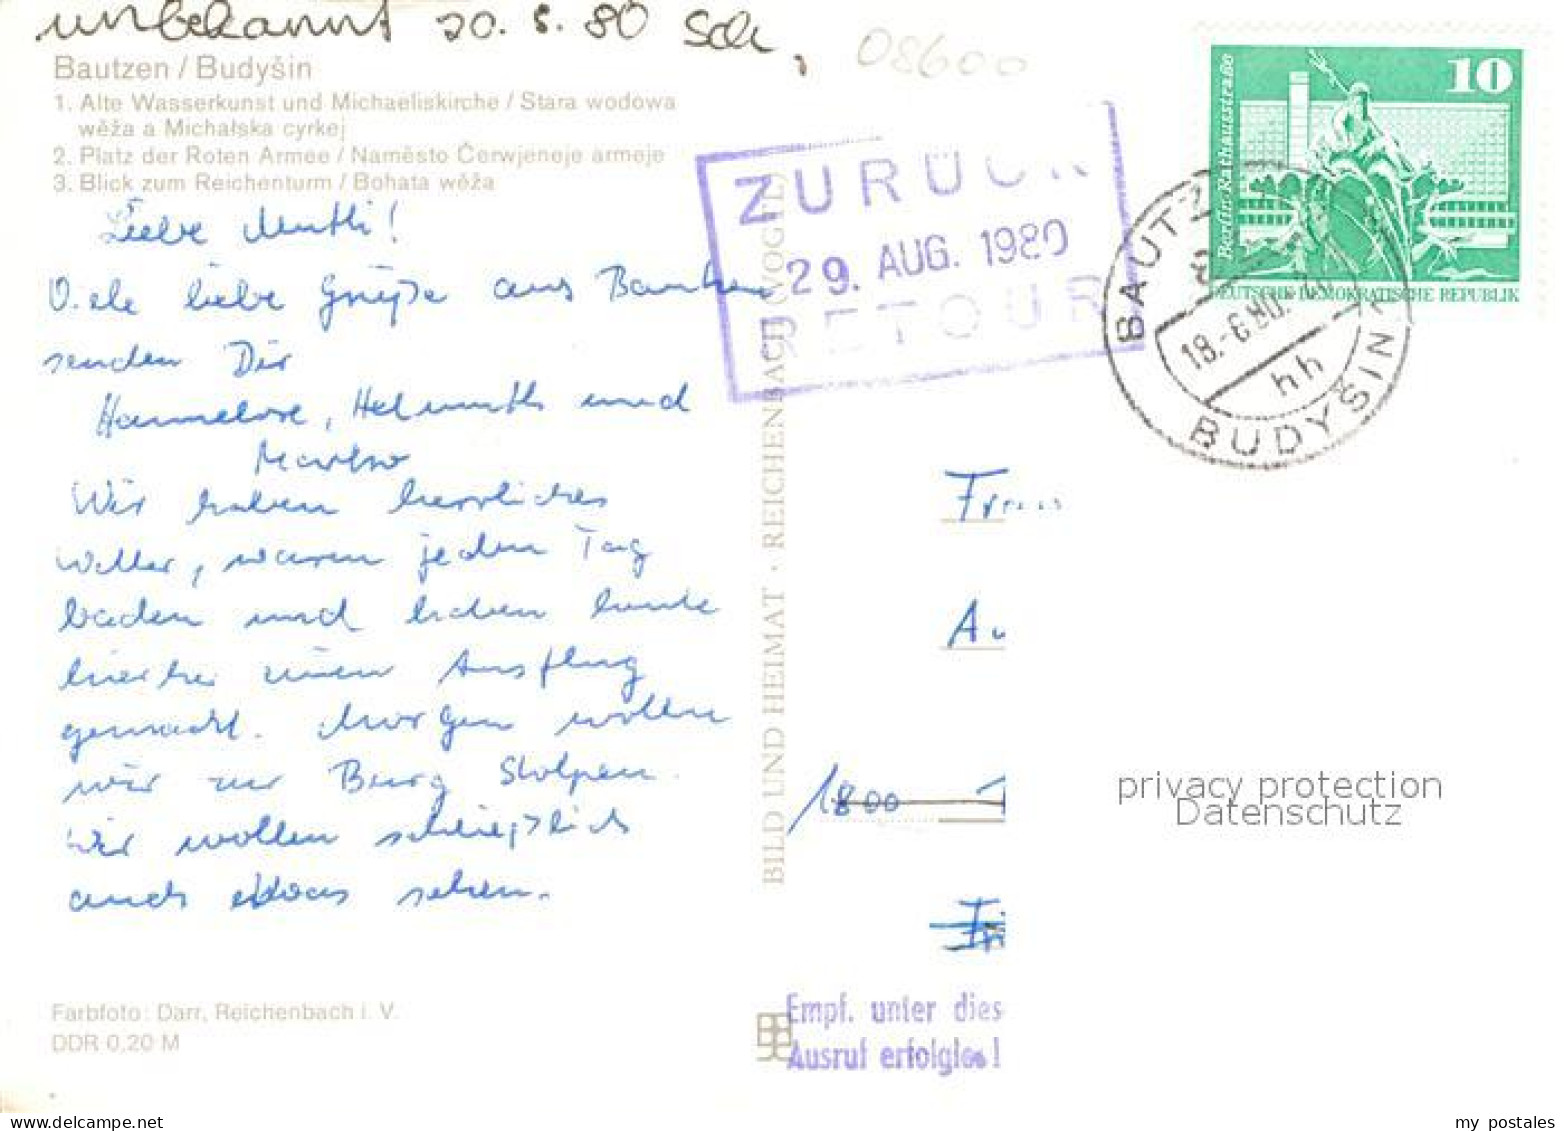 unbekannt 20.8.80 Sch,
08600
Bautzen / Budyšin
1. Alte Wasserkunst und Michaeliskirche / Stara wodowa
wěža a Michałska cyrkej
2. Platz der Roten Armee / Naměsto Čerwjeneje armeje
3. Blick zum Reichenturm / Bohata wěža
Liebe Mutti!
Viele liebe Grüße aus Bautzen
senden Dir
Hannelore, Helmuth und
Wir haben herrliches
Wetter, waren jeden Tag
baden und haben heute
hierher einen Ausflug
gemacht. Morgen wollen
wir zur Burg Stolpen.
Wir wollen schließlich
auch etwas sehen.
Farbfoto: Darr, Reichenbach i. V.
DDR 0,20 M
BILD UND HEIMAT · REICHENBACH (VOGTL)
ZURÜCK
29. AUG. 1980
RETOUR
10
Berlin-Rathausstraße
DEUTSCHE DEMOKRATISCHE REPUBLIK
BAUTZEN
18.-6.80
hh
BUDYŠIN
Frau
Au
1800
privacy protection
Datenschutz
Empf. unter dies
Ausruf erfolglos!
my postales